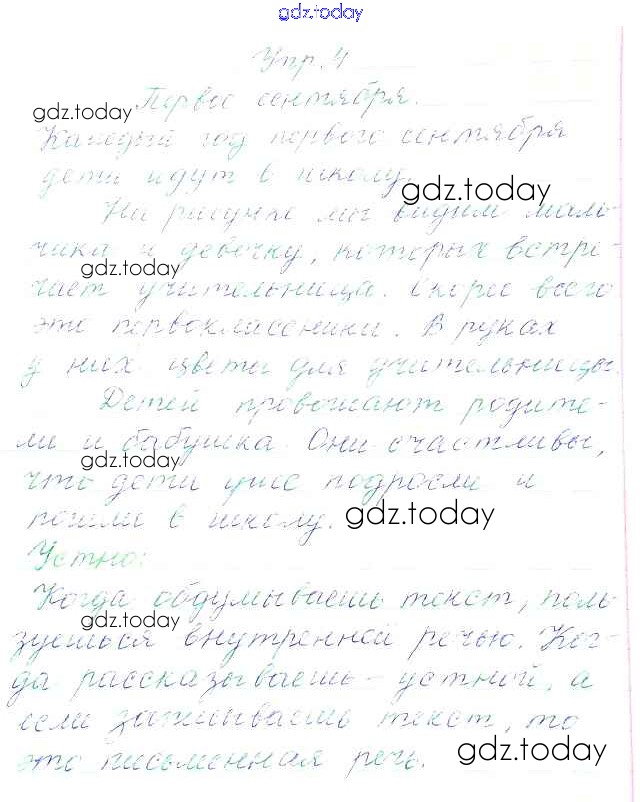 gdz.today
Упр. 4
Первое сентября.
gdz.today
Каждый год первого сентября
дети идут в школу.
gdz.today
На рисунке мы видим маль-
чика и девочку, которых встре-
gdz.today
чает учительница. Скорее всего
это первоклассники. В руках
у них цветы для учительницы.
Детей провожают родите-
ли и бабушка. Они счастливы,
gdz.today
что дети уже подросли и
пошли в школу.
gdz.today
Устно:
Когда обдумываешь текст, поль
gdz.today
зуешься внутренней речью. Ког-
да рассказываешь - устной, а
если записываешь текст, то
gdz.today
это письменная речь.